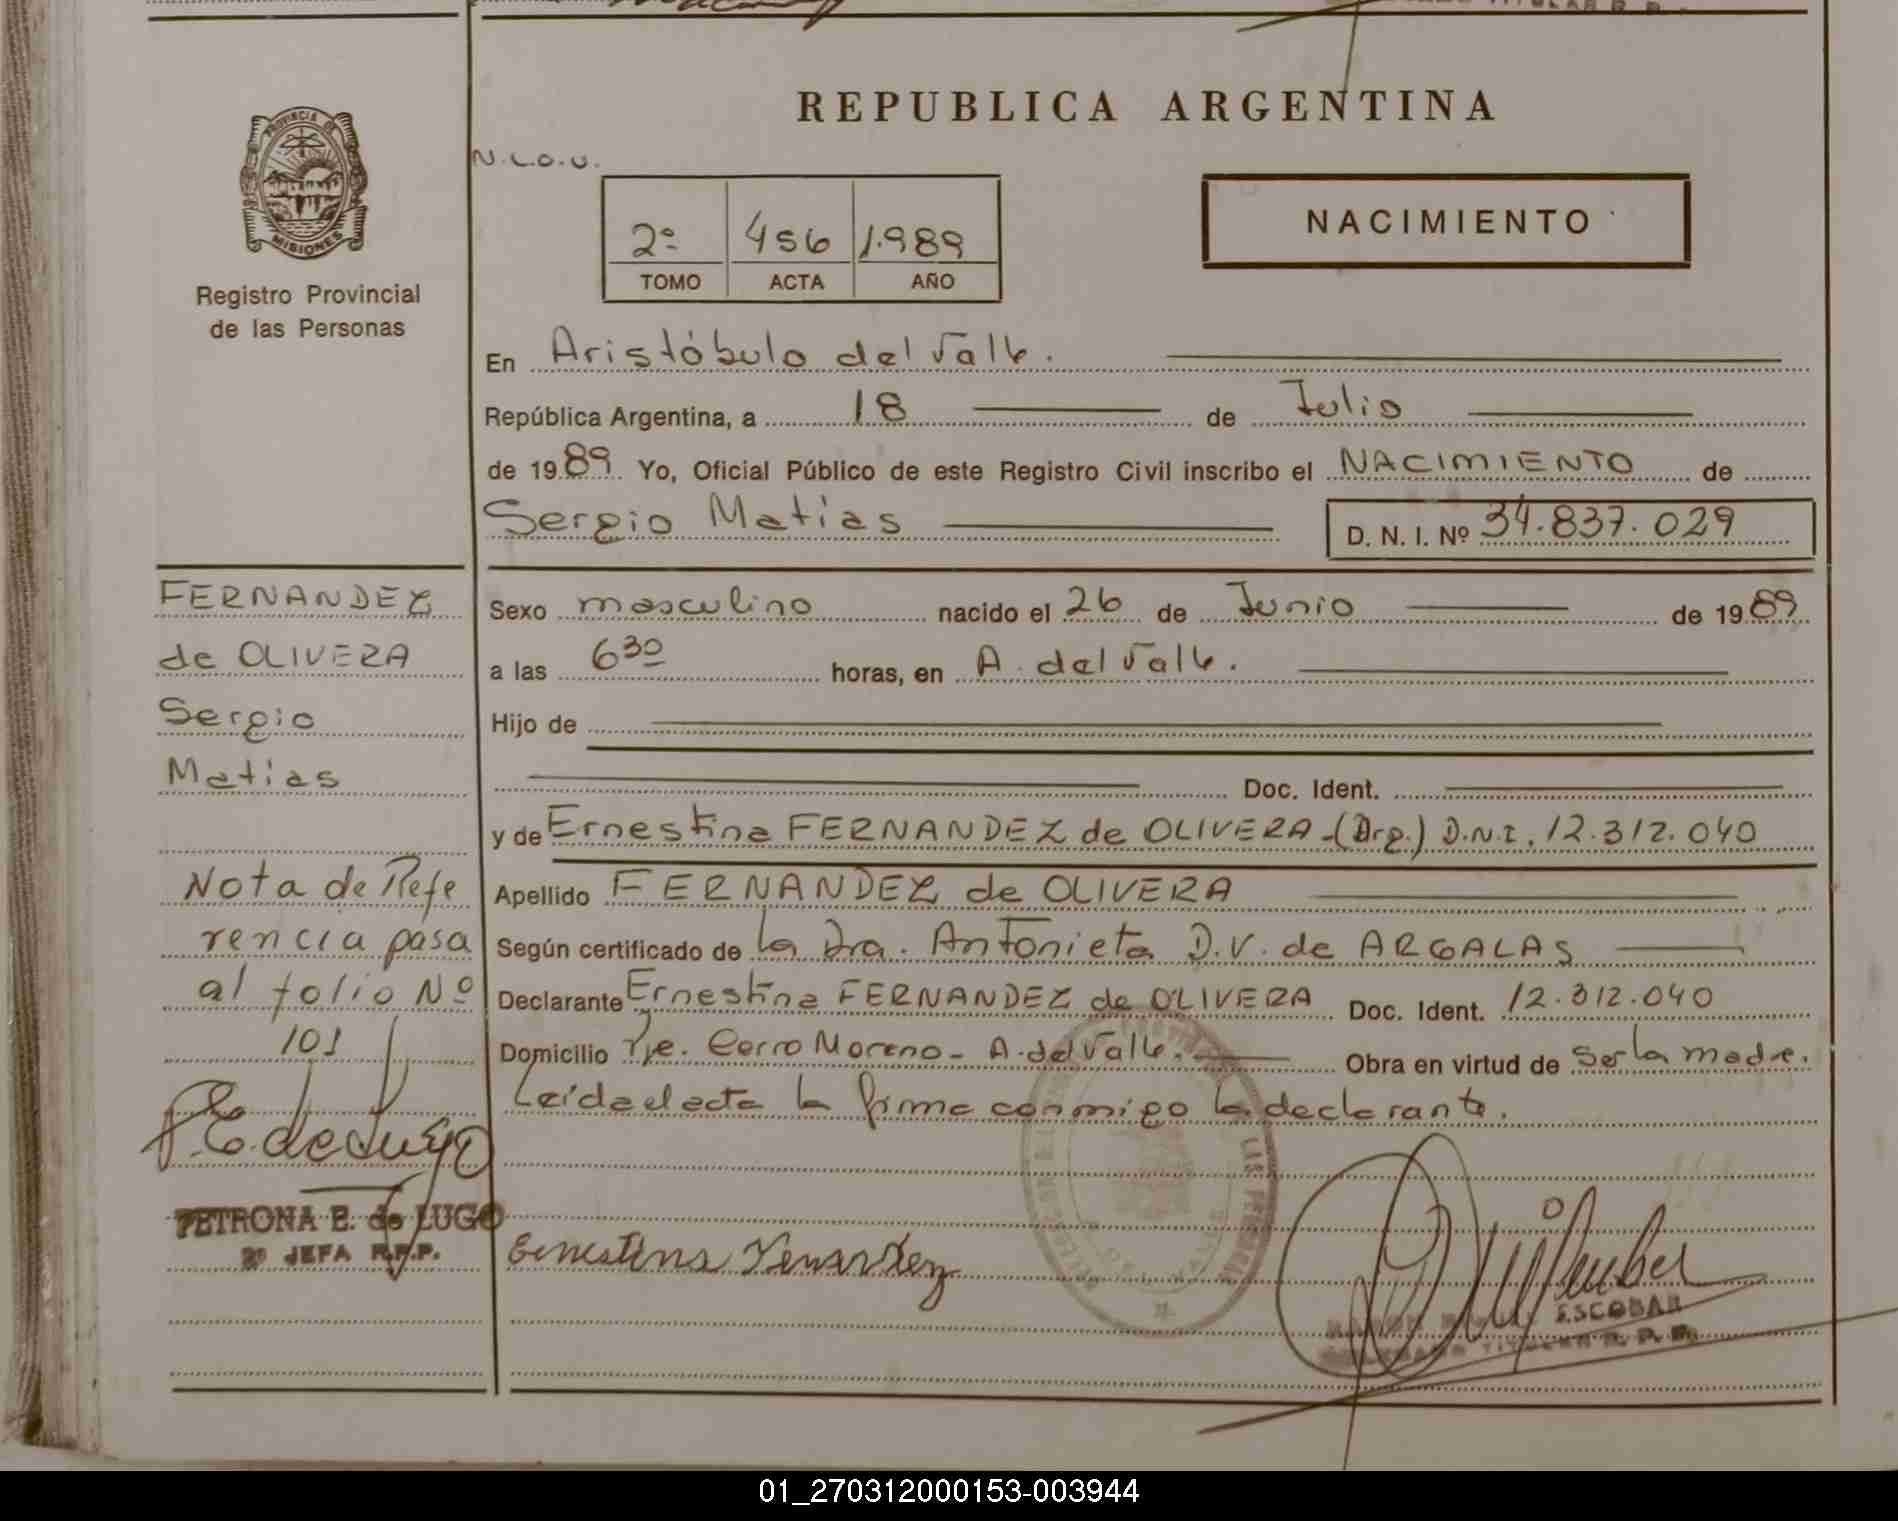 REPUBLICA ARGENTINA
PROVINCIA DE
MISIONES
Registro Provincial
de las Personas
N.L.O.U.
2º 456 1.989
TOMO ACTA AÑO
NACIMIENTO
En Aristóbulo del Valle.
República Argentina, a 18 de Julio
de 1989 Yo, Oficial Público de este Registro Civil inscribo el NACIMIENTO de
Sergio Matias D. N. I. Nº 34.837.029
FERNANDEZ
de OLIVERA
Sergio
Matias
Nota de Refe
rencia pasa
al folio Nº
101
P.E. de Lugo
PETRONA E. de LUGO
2º JEFA R.P.P.
Sexo masculino nacido el 26 de Junio de 1989
a las 6 30 horas, en A. del Valle.
Hijo de
Doc. Ident.
y de Ernestina FERNANDEZ de OLIVERA-(Arg.) D.N.I. 12.312.040
Apellido FERNANDEZ de OLIVERA
Según certificado de la Dra. Antonieta D.V. de ARGALAS
Declarante Ernestina FERNANDEZ de OLIVERA Doc. Ident. 12.312.040
Domicilio Pje. Cerro Moreno- A. del Valle. Obra en virtud de ser la madre.
Leída el acta la firma conmigo la declarante.
Ernestina Fernandez
ESCOBAR
TITULAR R. P. P.
01_270312000153-003944